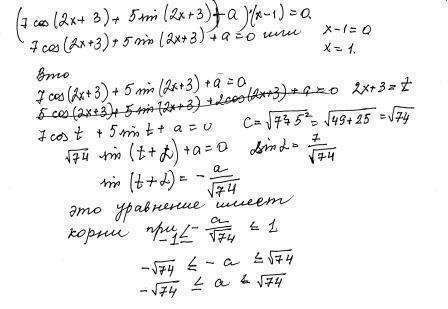 (7 cos(2x+3) + 5 sin(2x+3) + a)·(x-1) = 0
7 cos(2x+3) + 5 sin(2x+3) + a = 0 или x-1=0
x=1.
Это
7 cos(2x+3) + 5 sin(2x+3) + a = 0
5 cos(2x+3) + 5 sin(2x+3) + 2cos(2x+3) + a = 0 2x+3 = t
7 cos t + 5 sin t + a = 0 C = √7²+5² = √49+25 = √74
√74 sin(t+α) + a = 0 sin α = 7/√74
sin(t+α) = - a/√74
это уравнение имеет
корни при -1 ≤ - a/√74 ≤ 1
-√74 ≤ -a ≤ √74
-√74 ≤ a ≤ √74